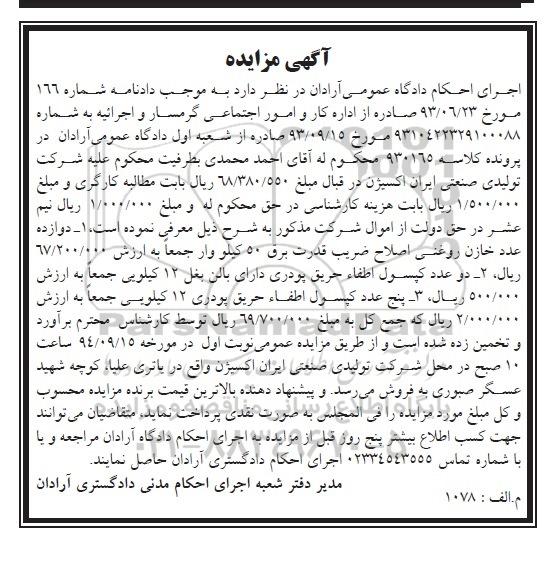 آگهی مزایده
اجرای احکام دادگاه عمومی‌آرادان در نظر دارد به موجب دادنامه شماره ۱۶۶
مورخ ۹۳/۰۶/۲۳ صادره از اداره کار و امور اجتماعی گرمسار و اجرائیه به شماره
۹۳۱۰۴۲۲۳۲۹۱۰۰۰۸۸ مورخ ۹۳/۰۹/۱۵ صادره از شعبه اول دادگاه عمومی‌آرادان در
پرونده کلاسه ۹۳۰۱۶۵ محکوم له آقای احمد محمدی بطرفیت محکوم علیه شرکت
تولیدی صنعتی ایران اکسیژن در قبال مبلغ ۶۸/۳۸۰/۵۵۰ ریال بابت مطالبه کارگری و مبلغ
۱/۵۰۰/۰۰۰ ریال بابت هزینه کارشناسی در حق محکوم له و مبلغ ۱/۰۰۰/۰۰۰ ریال نیم
عشر در حق دولت از اموال شرکت مذکور به شرح ذیل معرفی نموده است،۱ـ دوازده
عدد خازن روغنی اصلاح ضریب قدرت برق ۵۰ کیلو وار جمعاً به ارزش ۶۷/۲۰۰/۰۰۰
ریال، ۲ـ دو عدد کپسول اطفاء حریق پودری دارای بالن بغل ۱۲ کیلویی جمعاً به ارزش
۵۰۰/۰۰۰ ریال، ۳ـ پنج عدد کپسول اطفاء حریق پودری ۱۲ کیلویی جمعاً به ارزش
۲/۰۰۰/۰۰۰ ریال که جمع کل به مبلغ ۶۹/۷۰۰/۰۰۰ ریال توسط کارشناس محترم برآورد
و تخمین زده شده است و از طریق مزایده عمومی‌نوبت اول در مورخه ۹۴/۰۹/۱۵ ساعت
۱۰ صبح در محل شرکت تولیدی صنعتی ایران اکسیژن واقع در یاتری علیا، کوچه شهید
عسگر صبوری به فروش می‌رسد. و پیشنهاد دهنده بالاترین قیمت برنده مزایده محسوب
و کل مبلغ مورد مزایده را فی المجلس به صورت نقدی پرداخت نماید، متقاضیان می‌توانند
جهت کسب اطلاع بیشتر پنج روز قبل از مزایده به اجرای احکام دادگاه آرادان مراجعه و یا
با شماره تماس ۰۲۳۳۴۵۴۳۵۵۵ اجرای احکام دادگستری آرادان حاصل نمایند.
مدیر دفتر شعبه اجرای احکام مدنی دادگستری آرادان
م.الف : ۱۰۷۸